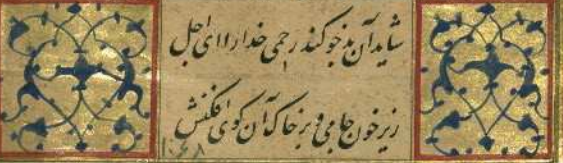 شاید آن بدخو کند رحمی خدا را ای اجل
زیر خون جامی و بر خاک آن کوی افکنش
۱۰۴۸